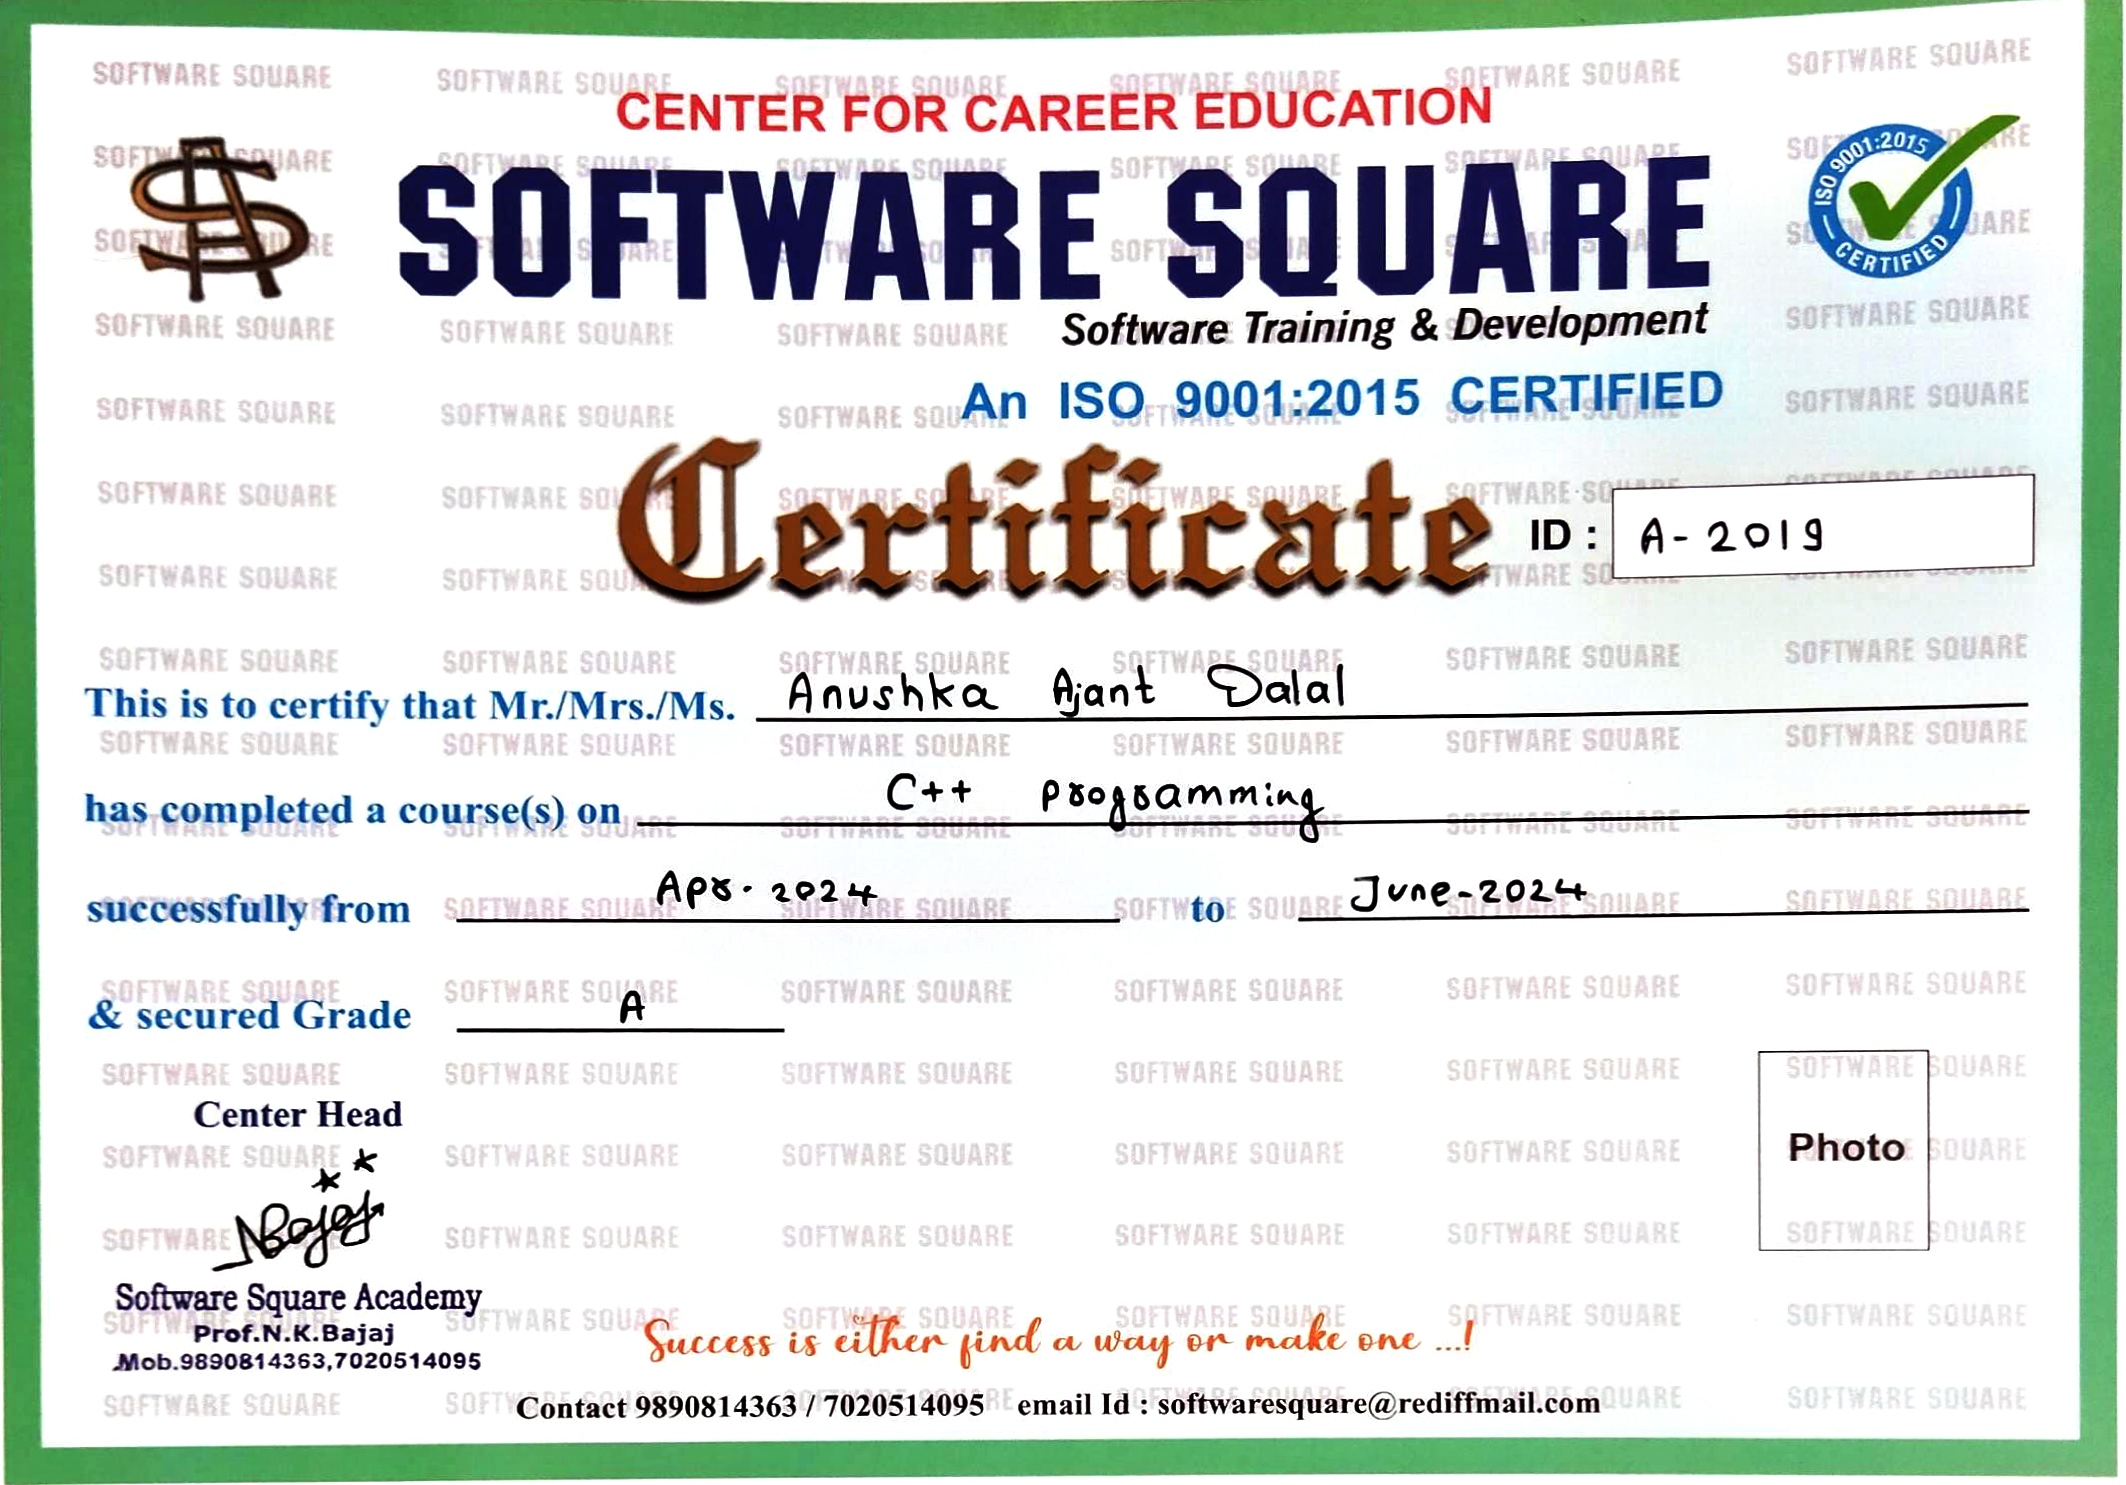 CENTER FOR CAREER EDUCATION
SOFTWARE SQUARE
ISO 9001:2015 CERTIFIED
Software Training & Development
An ISO 9001:2015 CERTIFIED
Certificate
ID : A-2019
This is to certify that Mr./Mrs./Ms. Anushka Ajant Dalal
has completed a course(s) on C++ programming
successfully from Apr. 2024 to June-2024
& secured Grade A
Center Head
NBajaj
Photo
Software Square Academy
Prof.N.K.Bajaj
Mob.9890814363,7020514095
Success is either find a way or make one ...!
Contact 9890814363 / 7020514095 email Id : softwaresquare@rediffmail.com